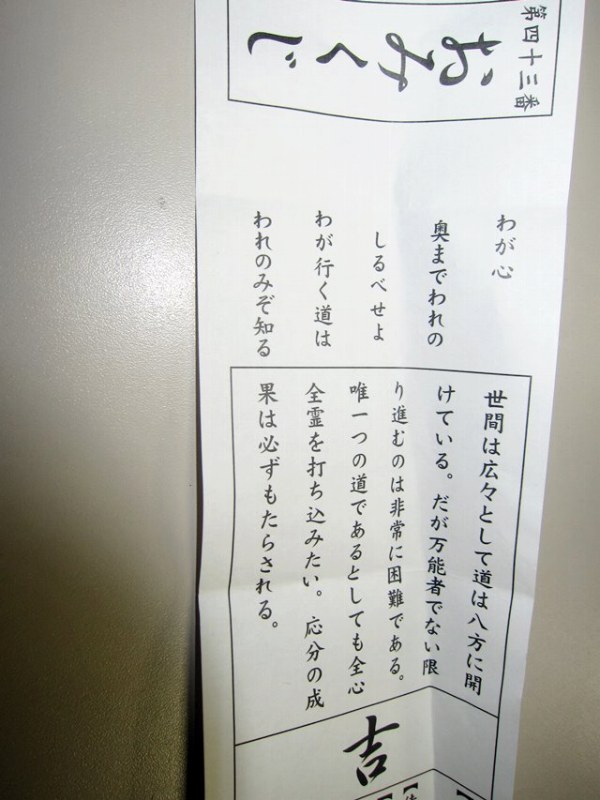 第四十三番
おみくじ
わが心
奥までわれの
しるべせよ
わが行く道は
われのみぞ知る
世間は広々として道は八方に開
けている。だが万能者でない限
り進むのは非常に困難である。
唯一つの道であるとしても全心
全霊を打ち込みたい。応分の成
果は必ずもたらされる。
吉